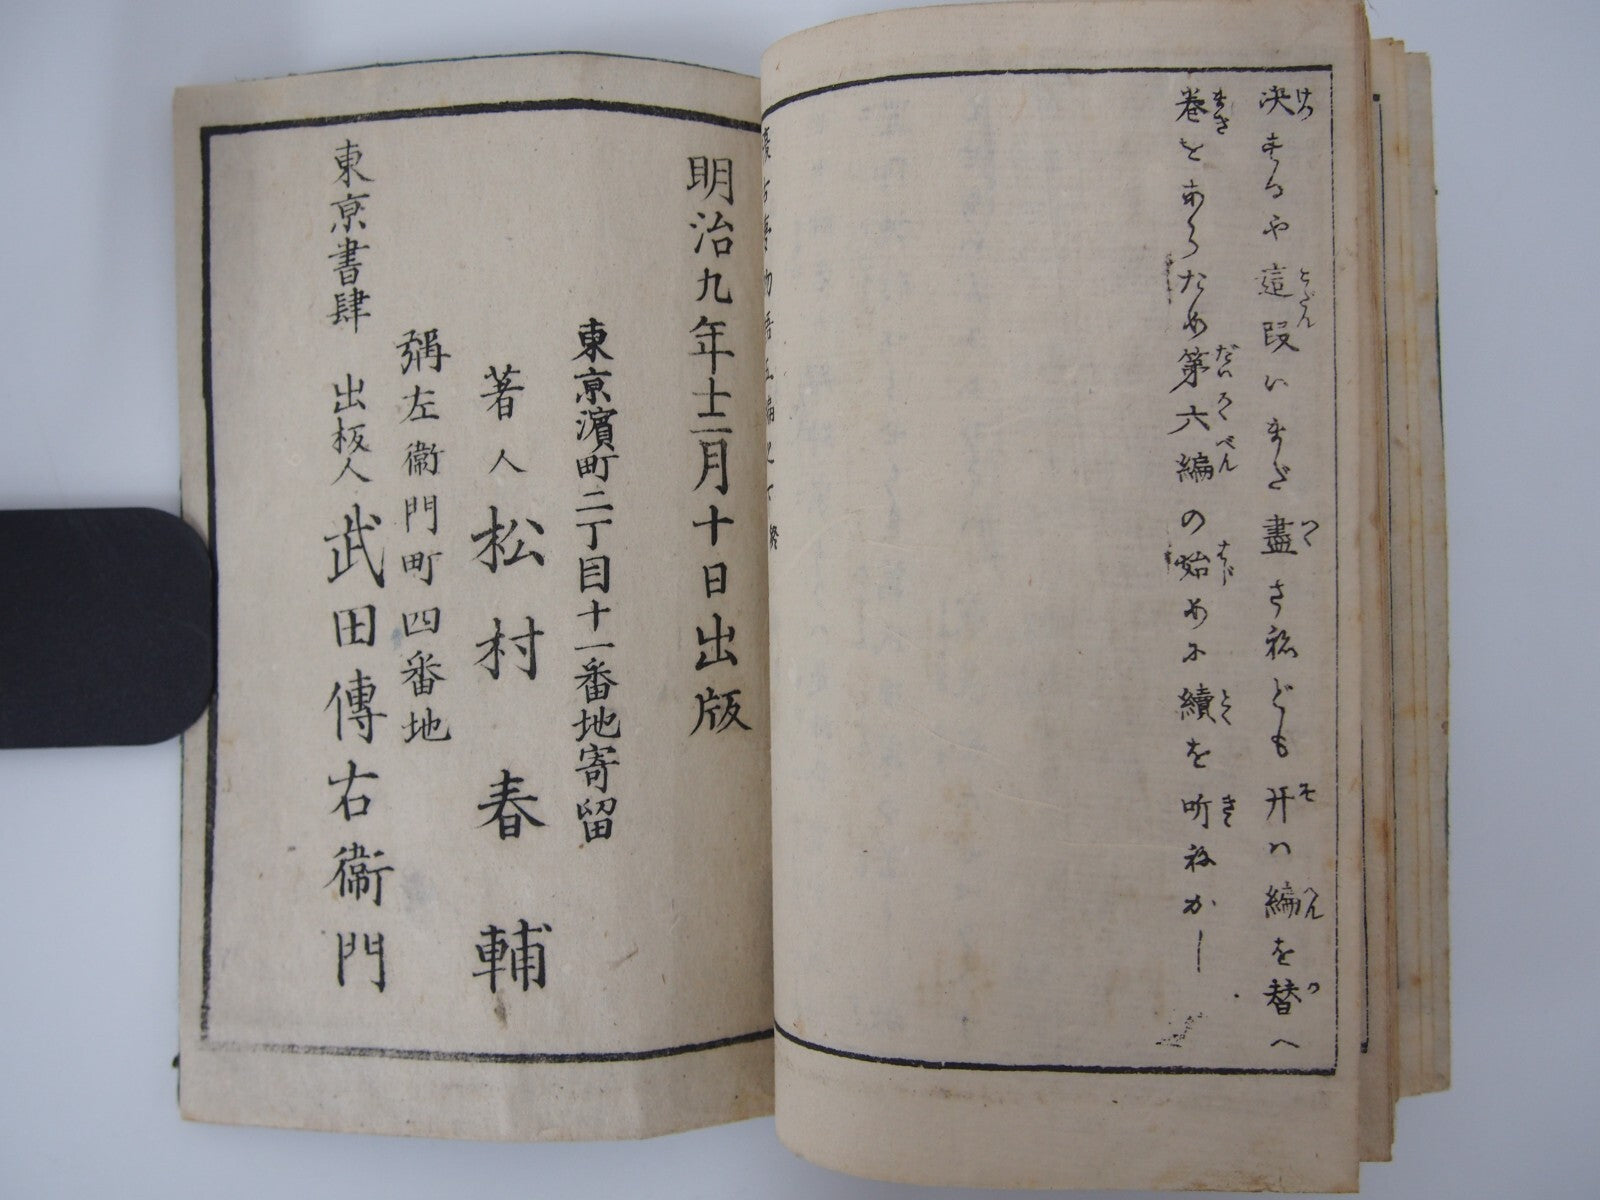 決するや這段いまだ盡さねども开ハ編を替へ
巻をあらため第六編の始めに續を听ねかし
復古夢物語五編之下終
明治九年十二月十日出版
東京濱町二丁目十一番地寄留
著人 松村春輔
彌左衞門町四番地
東京書肆 出板人 武田傳右衞門